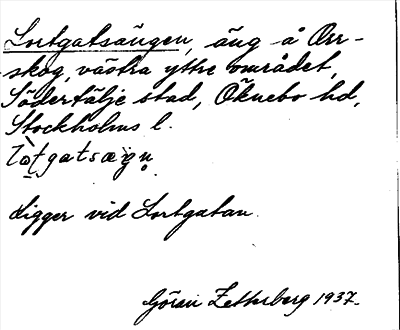 Lortgatsängen, äng å Orr-
skog, västra yttre området,
Södertälje stad, Öknebo hd,
Stockholms l.
Ligger vid Lortgatan.
Göran Zetterberg 1937.